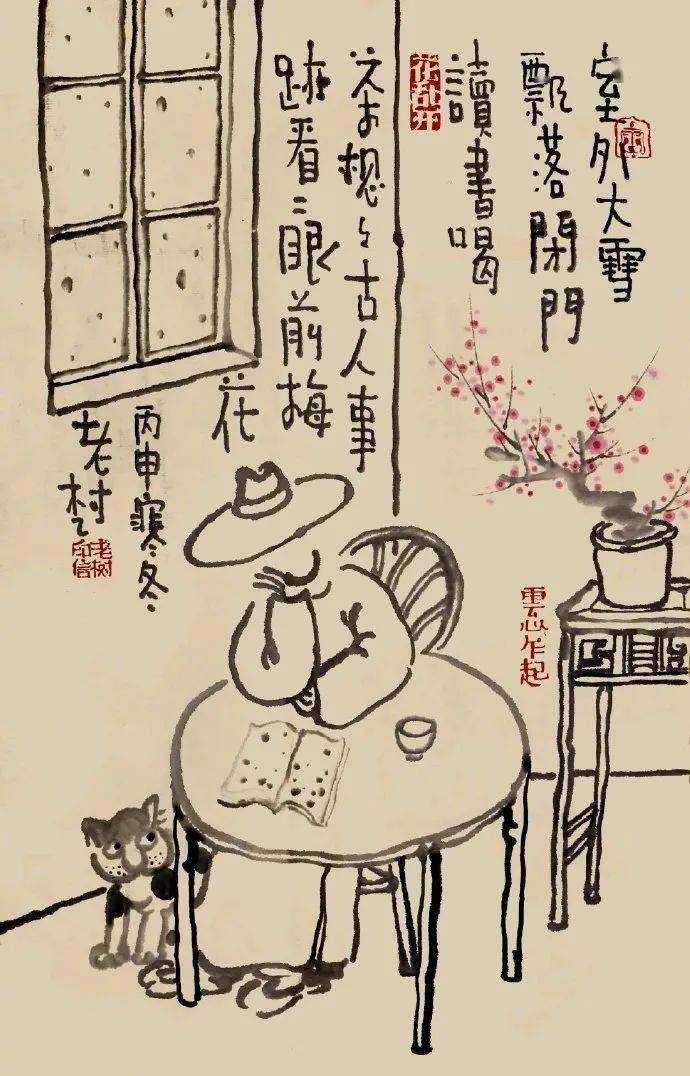 室外大雪
飄落閉門
讀書喝
茶想々古人事
跡看々眼前梅
花
丙申寒冬
老树
花乱开
雲心乍起